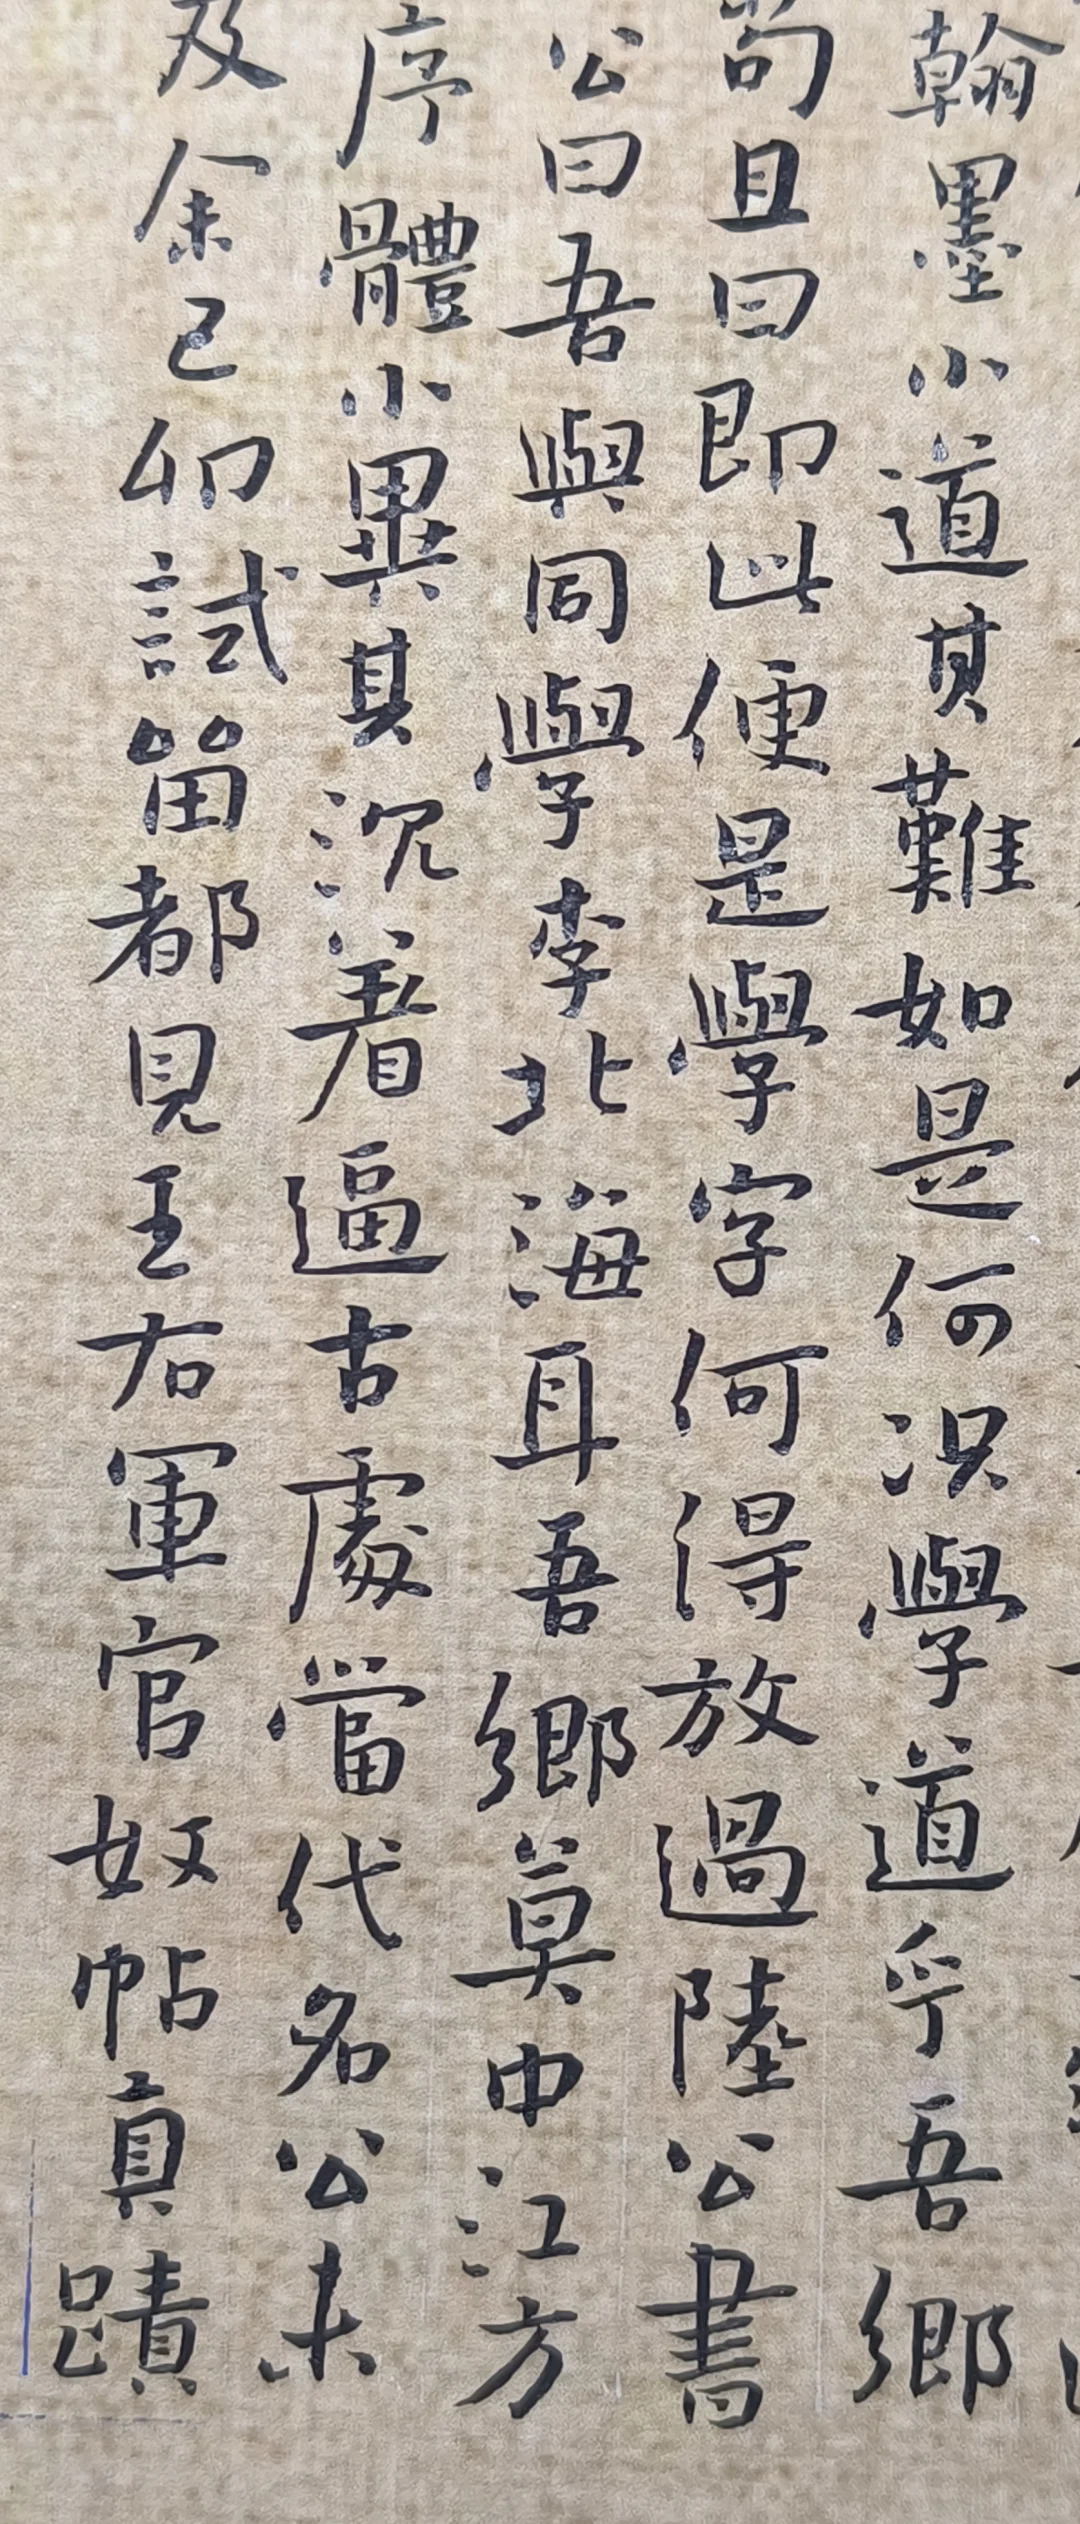 翰墨小道其難如是何况學道乎吾鄉
苟且曰即此便是學字何得放過陸公書
公曰吾與同學李北海耳吾鄉莫中江方
序體小異其沉着逼古處當代名公未
及余己卯試留都見王右軍官奴帖真蹟